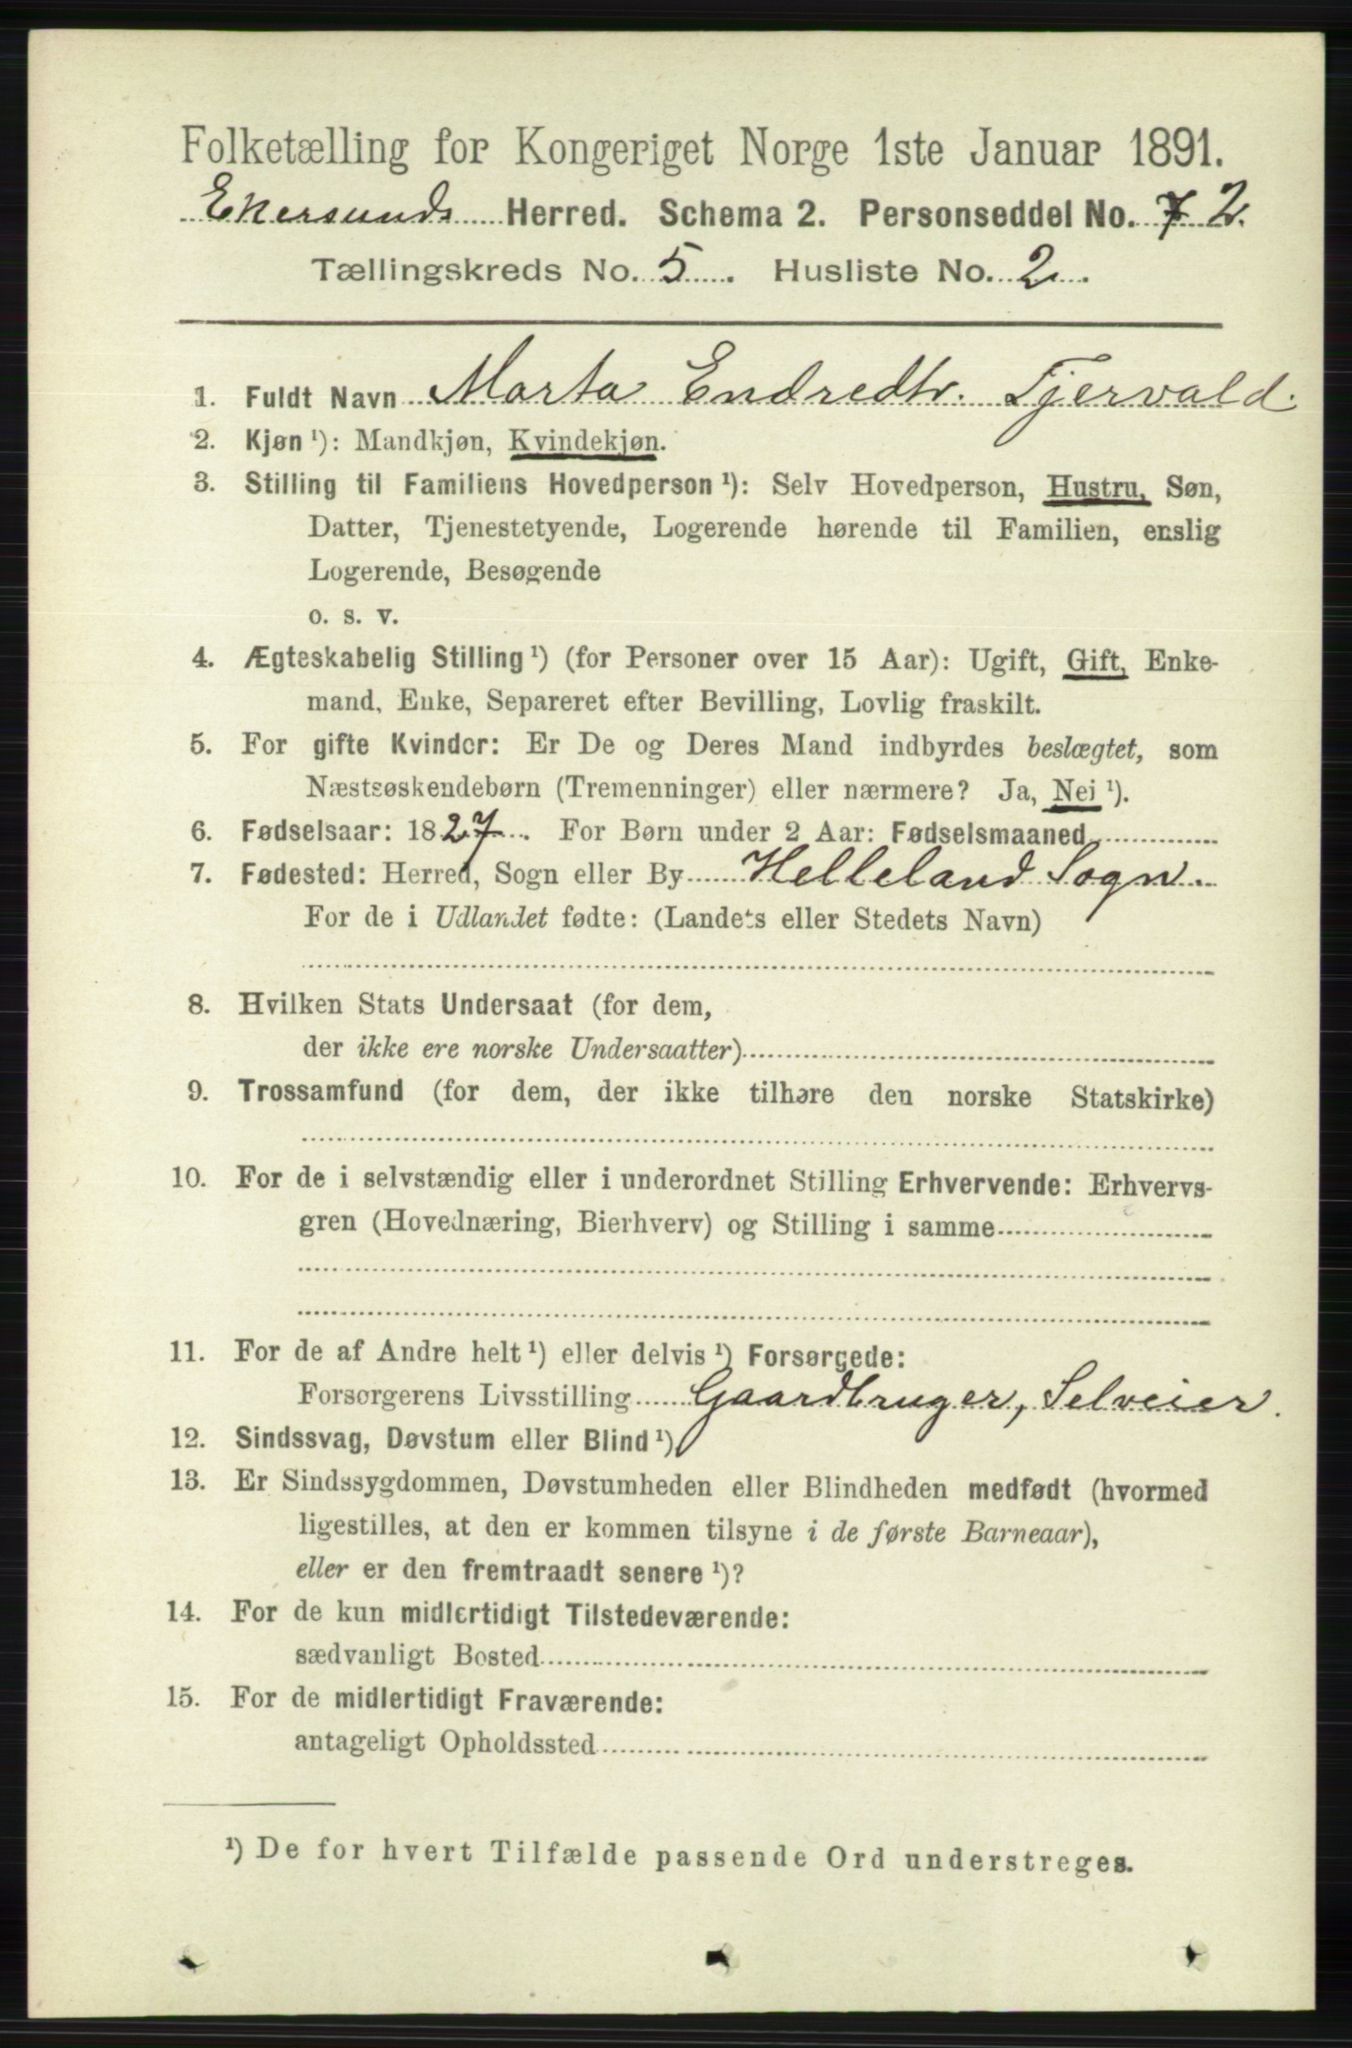 Folketælling for Kongeriget Norge 1ste Januar 1891.
Ekersunds Herred. Schema 2. Personseddel No. 7 2.
Tællingskreds No. 5. Husliste No. 2.
1. Fuldt Navn Marta Endredtr. Tjervald.
2. Kjøn ¹): Mandkjøn, Kvindekjøn.
3. Stilling til Familiens Hovedperson ¹): Selv Hovedperson, Hustru, Søn,
Datter, Tjenestetyende, Logerende hørende til Familien, enslig
Logerende, Besøgende
o. s. v.
4. Ægteskabelig Stilling ¹) (for Personer over 15 Aar): Ugift, Gift, Enke-
mand, Enke, Separeret efter Bevilling, Lovlig fraskilt.
5. For gifte Kvinder: Er De og Deres Mand indbyrdes beslægtet, som
Næstsøskendebørn (Tremenninger) eller nærmere? Ja, Nei ¹).
6. Fødselsaar: 1827. For Børn under 2 Aar: Fødselsmaaned
7. Fødested: Herred, Sogn eller By Helleland Sogn.
For de i Udlandet fødte: (Landets eller Stedets Navn)
8. Hvilken Stats Undersaat (for dem,
der ikke ere norske Undersaatter)
9. Trossamfund (for dem, der ikke tilhøre den norske Statskirke)
10. For de i selvstændig eller i underordnet Stilling Erhvervende: Erhvervs-
gren (Hovednæring, Bierhverv) og Stilling i samme
11. For de af Andre helt ¹) eller delvis ¹) Forsørgede:
Forsørgerens Livsstilling Gaardbruger, Selveier.
12. Sindssvag, Døvstum eller Blind ¹)
13. Er Sindssygdommen, Døvstumheden eller Blindheden medfødt (hvormed
ligestilles, at den er kommen tilsyne i de første Barneaar),
eller er den fremtraadt senere ¹)?
14. For de kun midlertidigt Tilstedeværende:
sædvanligt Bosted
15. For de midlertidigt Fraværende:
antageligt Opholdssted
¹) De for hvert Tilfælde passende Ord understreges.